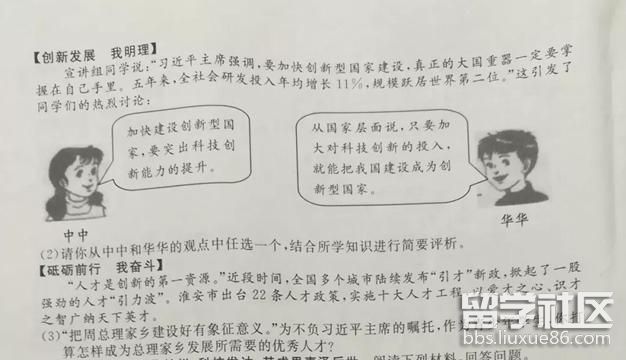 【创新发展 我明理】
宣讲组同学说:“习近平主席强调,要加快创新型国家建设,真正的大国重器一定要掌
握在自己手里。五年来,全社会研发投入年均增长11%,规模跃居世界第二位。”这引发了
同学们的热烈讨论:
加快建设创新型国
家,要突出科技创
新能力的提升。
从国家层面说,只要加
大对科技创新的投入,
就能把我国建设成为创
新型国家。
中中
华华
(2)请你从中中和华华的观点中任选一个,结合所学知识进行简要评析。
【砥砺前行 我奋斗】
“人才是创新的第一资源。”近段时间,全国多个城市陆续发布“引才”新政,掀起了一股
强劲的人才“引力波”。淮安市出台22条人才政策,实施十大人才工程,以爱才之心、识才
之智广纳天下英才。
(3)“把周总理家乡建设好有象征意义。”为不负习近平主席的嘱托,作
算怎样成为总理家乡发展所需要的优秀人才?
阅读下列材料,回答问题。
留学社区
bbs.liuxue86.com